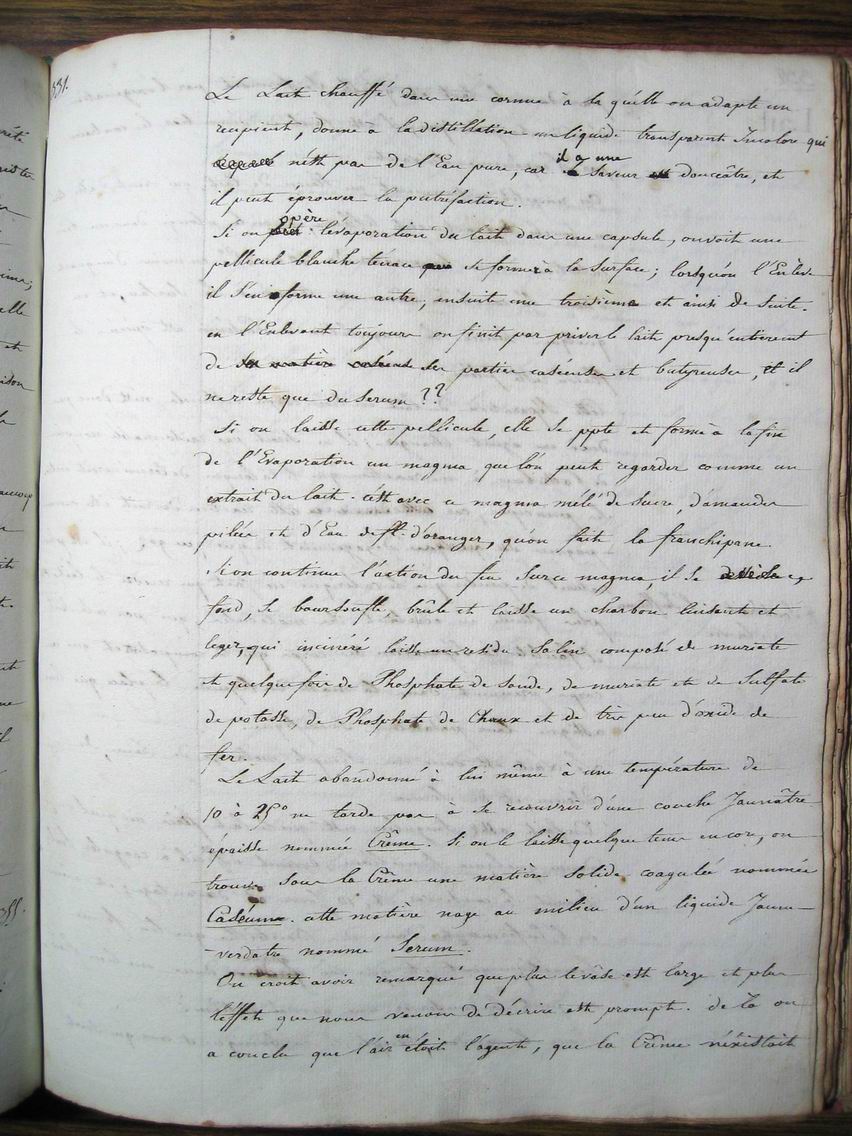 331.
Le Lait chauffé dans une cornue à la quélle on adapte un
recipient, donne à la distillation un liquide transparent Incolore qui
n'est pas de l'Eau pure, car il a une saveur douceâtre, et
il peut éprouver la putréfaction.
Si on opère l'évaporation du lait dans une capsule, on voit une
pellicule blanche tenace se former à la surface; lorsqu'on l'Enlève
il s'en forme une autre, ensuite une troisième et ainsi de suite.
en l'Enlevant toujours on finit par priver le lait presqu'entierement
de ses parties caséeuse et butyreuses, et il
ne reste que du serum ??
Si on laisse cette pellicule, elle se ppte et forme à la fin
de l'Evaporation un magma que l'on peut regarder comme un
extrait du lait. c'est avec ce magma mêlé de sucre, d'amandes
pilées et d'Eau de fl. d'oranger, qu'on fait la franchipane.
Si on continue l'action du feu sur ce magma, il se
fond, se boursouffle, brûle et laisse un charbon luisant et
leger, qui incinéré laisse un residu salin composé de muriate
et quelque fois de Phosphate de soude, de muriate et de sulfate
de potasse, de Phosphate de Chaux et de très peu d'oxide de
fer.
Le Lait abandonné à lui même à une température de
10 à 25° ne tarde pas à se recouvrir d'une couche Jaunâtre
épaisse nommée Crême. Si on le laisse quelque tems encore, on
trouve sous la Crême une matière solide coagulée nommée
Caséum. cette matière nage au milieu d'un liquide Jaune
-verdatre nommé Serum.
On croit avoir remarqué que plus le vâse est large et plus
l'effet que nous venons de décrire est prompt. de là on
a conclu que l'air en étoit l'agent, que la Crême n'éxistoit